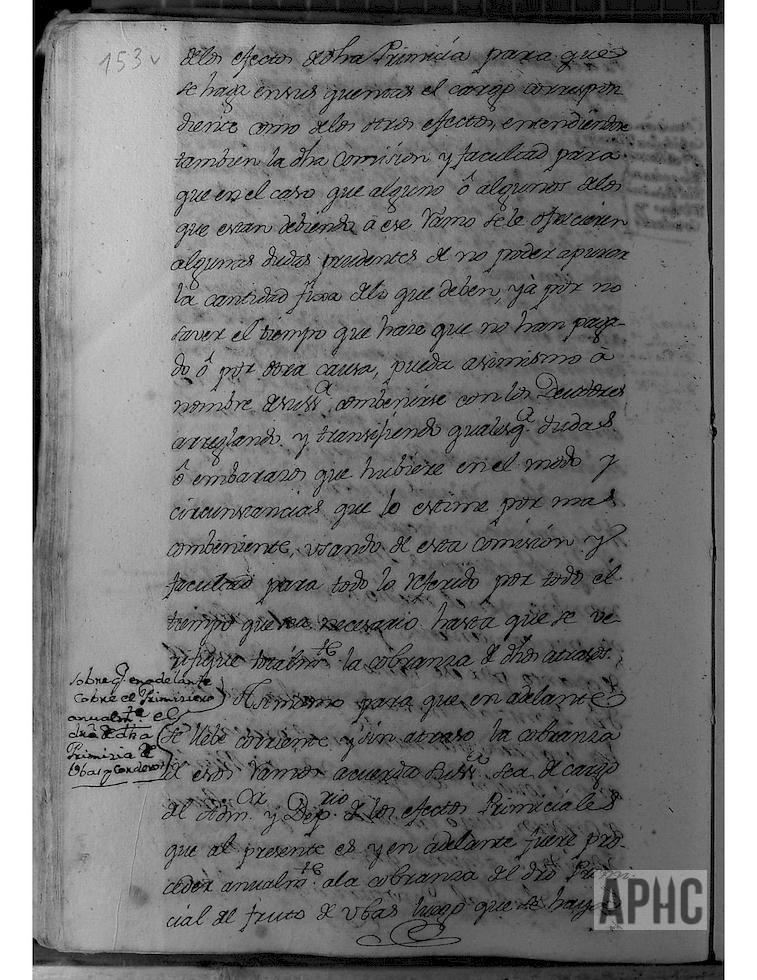 153v
delos efectos de dha Primicia para que
se haga en sus quentas el cargo correspon
diente como delos otros efectos, entendiendose
tambien la dha Comision y facultad para
que en el caso que alguno ô algunos delos
que estan debiendo à ese Ramo se le ofrecieren
algunas dudas prudentes de no poder apurar
la cantidad fixa delo que deben, yà por no
saver el tiempo que hace que no han paga-
do ô por otra causa, pueda asimismo à
nombre de su Sª combenirse con los Deudores
arreglando y transifiendo qualesqª dudas
ô embarazos que hubiere en el modo y
circunstancias que lo estime por mas
combeniente, usando de esta comision y
facultad para todo lo referido por todo el
tiempo que sea necesario hasta que se ve-
rifique totalmte la cobranza de dhos atrasos.
sobre q en adelante
cobre el Primiciero
anualmte el
dro de dha
Primicia de
Ubas y Corderos
Asimismo para que en adelante
se llebe corriente y sin atraso la cobranza
de esos Ramos acuerda su Sª sea de cargo
del Admor y Deprio de los efectos Primiciales
que al presente es y en adelante fuere pro-
ceder anualmte ala cobranza del dro Primi-
cial del fruto de Ubas luego que se haya
APHC